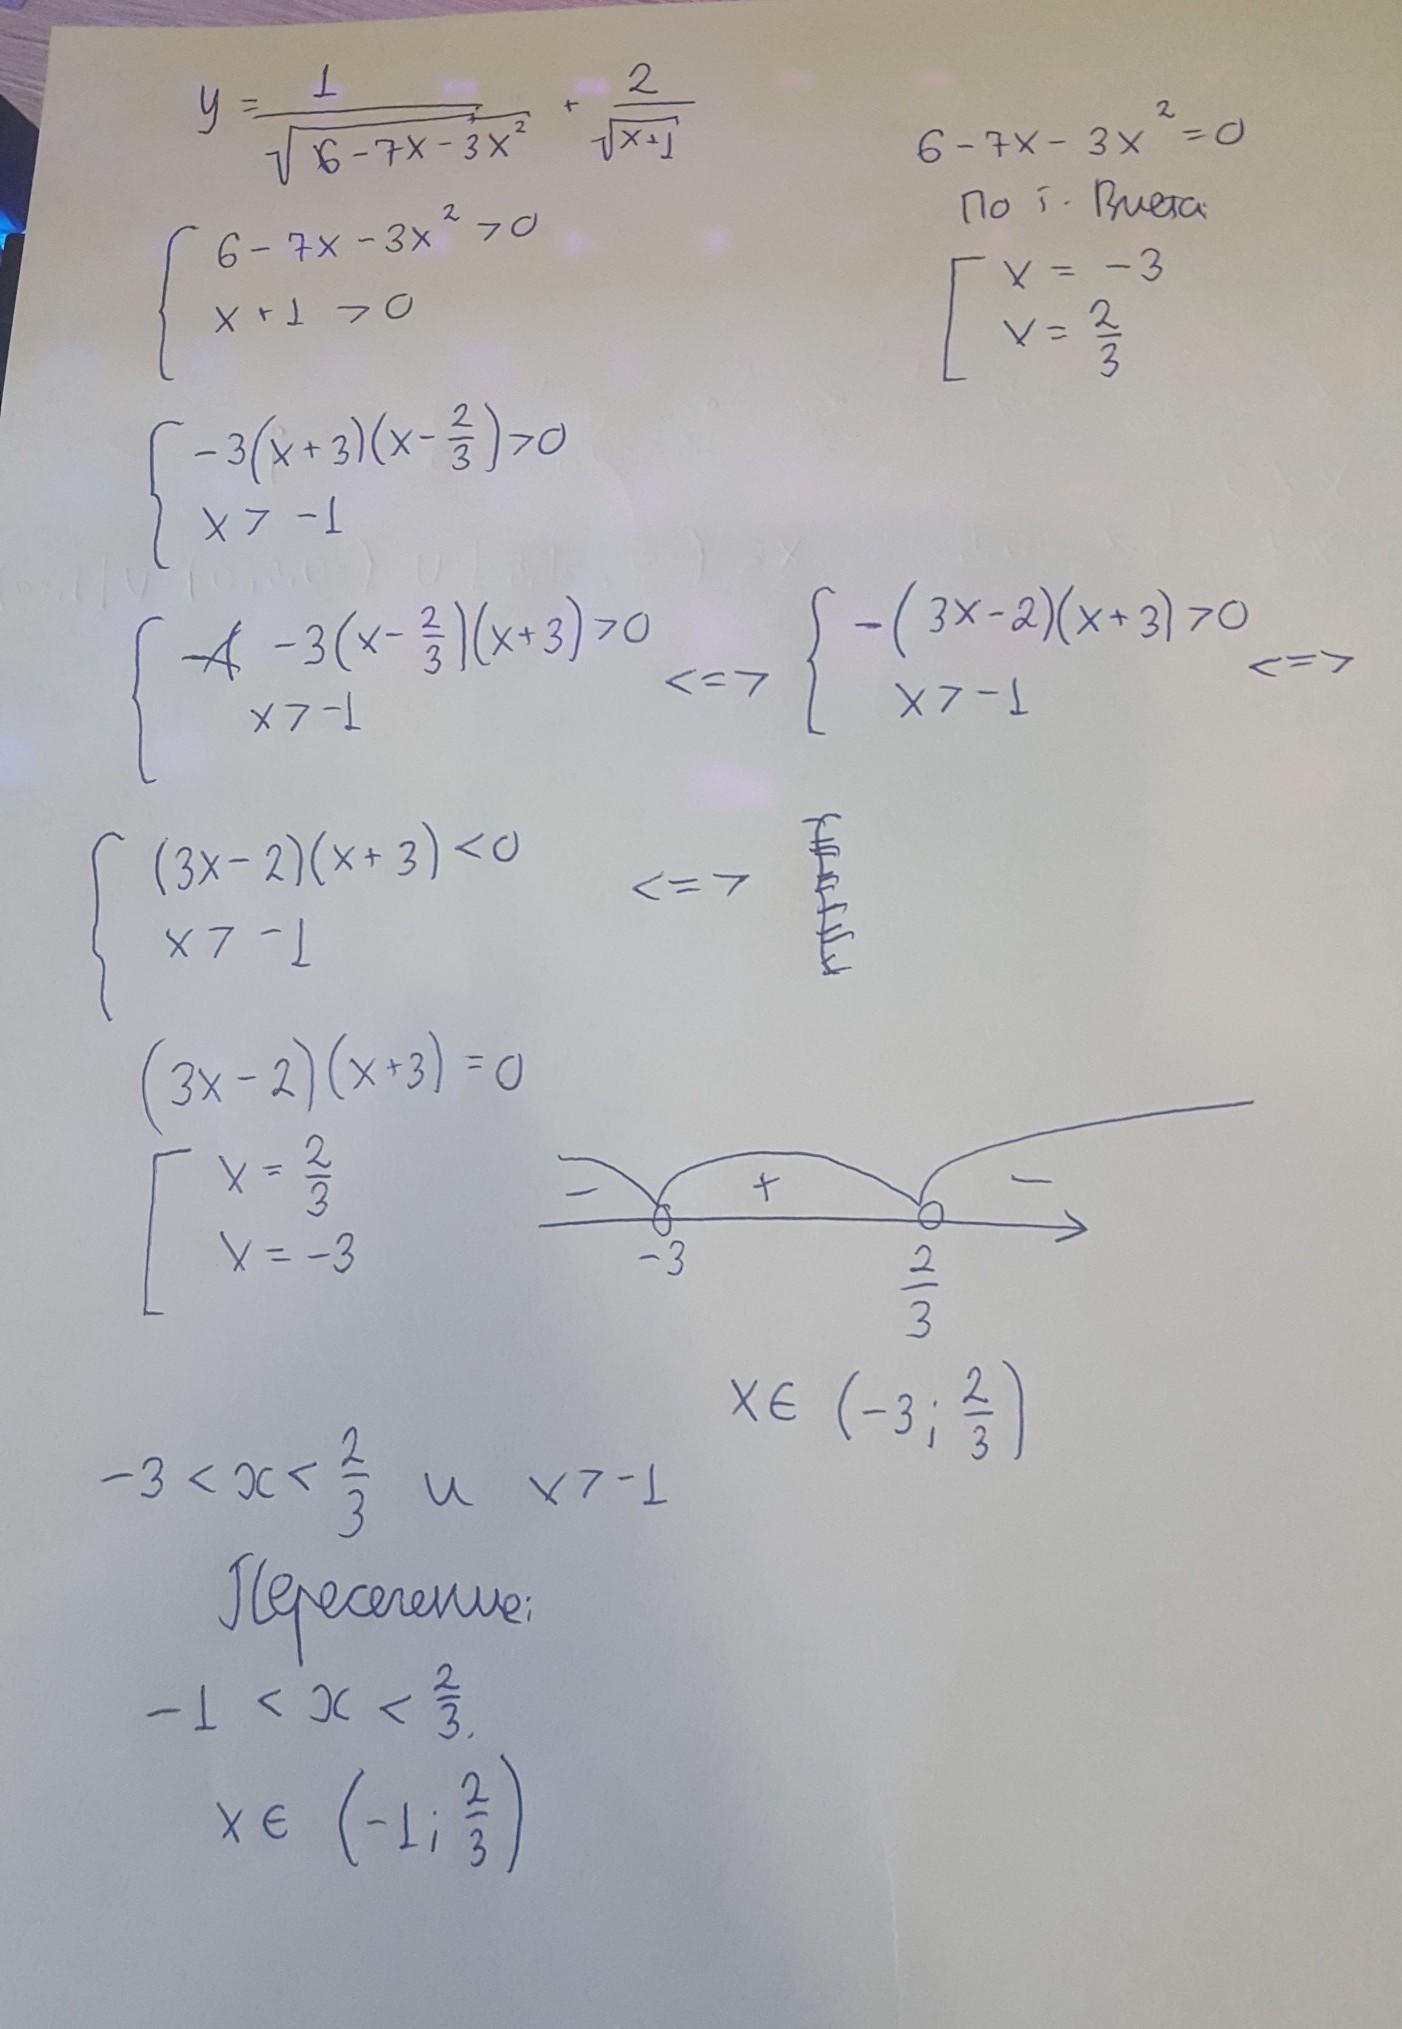 y = 1/√(6-7x-3x²) + 2/√(x+1)
6-7x-3x²=0
По т. Виета
[ x = -3
x = 2/3
{ 6-7x-3x²>0
x+1>0
{ -3(x+3)(x-2/3)>0
x>-1
{ -3(x-2/3)(x+3)>0
x>-1
<=>
{ -(3x-2)(x+3)>0
x>-1
<=>
{ (3x-2)(x+3)<0
x>-1
<=>
(3x-2)(x+3)=0
[ x = 2/3
x = -3
- + -
-3 2/3
x∈(-3; 2/3)
-3<x<2/3 и x>-1
Пересечение:
-1<x<2/3.
x∈(-1; 2/3)